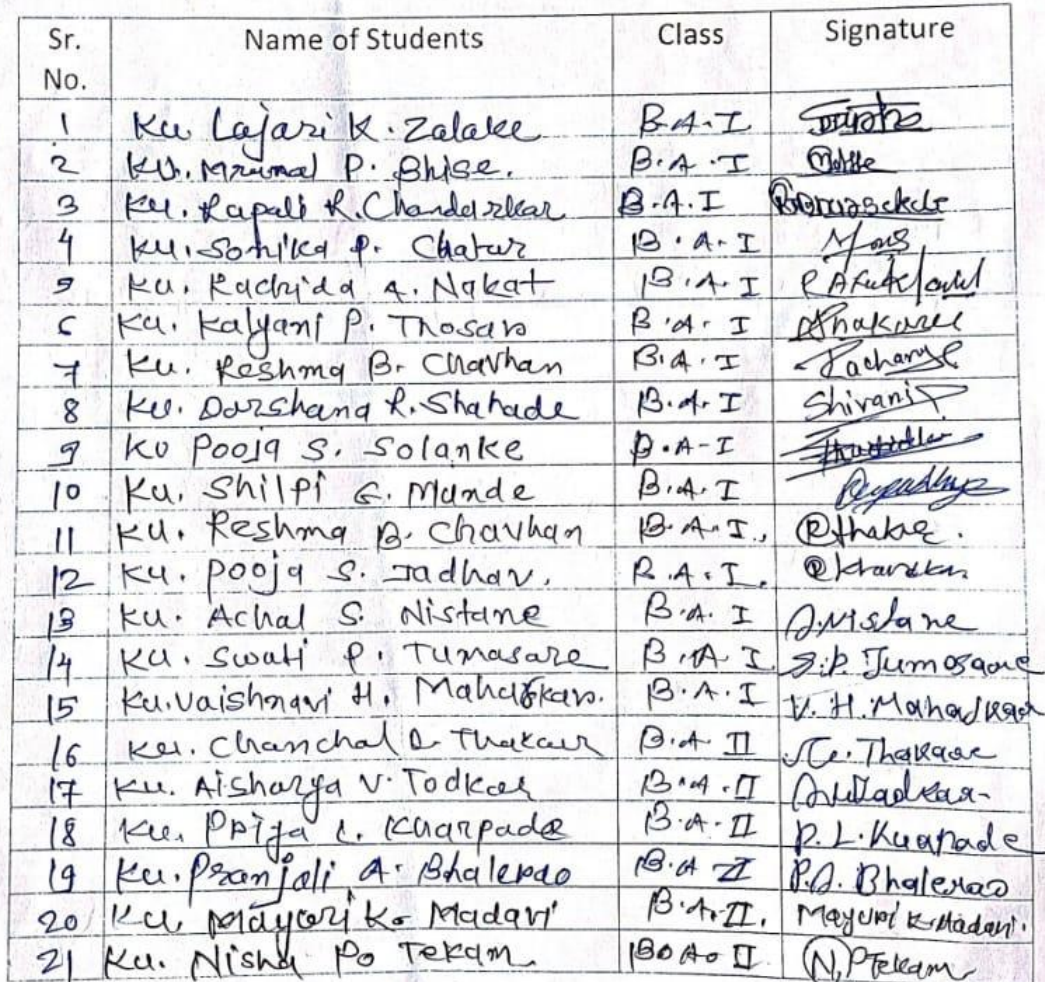 Sr. No. Name of Students Class Signature
1 Ku Lajari K. Zalake B.A.I
2 Ku. Mrunal P. Bhise. B.A.I
3 Ku. Rapali R. Chandarkar B.A.I
4 Ku. Sonika P. Chatur B.A.I
5 Ku. Rachida A. Nakat B.A.I
6 Ku. Kalyani P. Thosar B.A.I Thakare
7 Ku. Reshma B. Chavhan B.A.I
8 Ku. Darshana R. Shahade B.A.I Shivani
9 Ku Pooja S. Solanke B.A-I
10 Ku. Shilpi G. Munde B.A.I
11 Ku. Reshma B. Chavhan B.A.I. Rthakre.
12 Ku. Pooja S. Jadhav. B.A.I.
13 Ku. Achal S. Nistane B.A.I A.Nistane
14 Ku. Swati P. Tumasare B.A.I S.P. Tumosaare
15 Ku. Vaishnavi H. Mahajkar. B.A.I V. H. Mahajkar
16 Ku. Chanchal D. Thakaur B.A II Thakaor
17 Ku. Aisharya V. Todkar B.A.II
18 Ku. Priya L. Kharpade B.A-II P. L. Kuapade
19 Ku. Pranjali A. Bhalerao B.A II P.A. Bhalerao
20 Ku. Mayuri K. Madavi B.A.II. Mayuri K. Madavi.
21 Ku. Nisha Po Tekam. B.A. II N.P Tekam